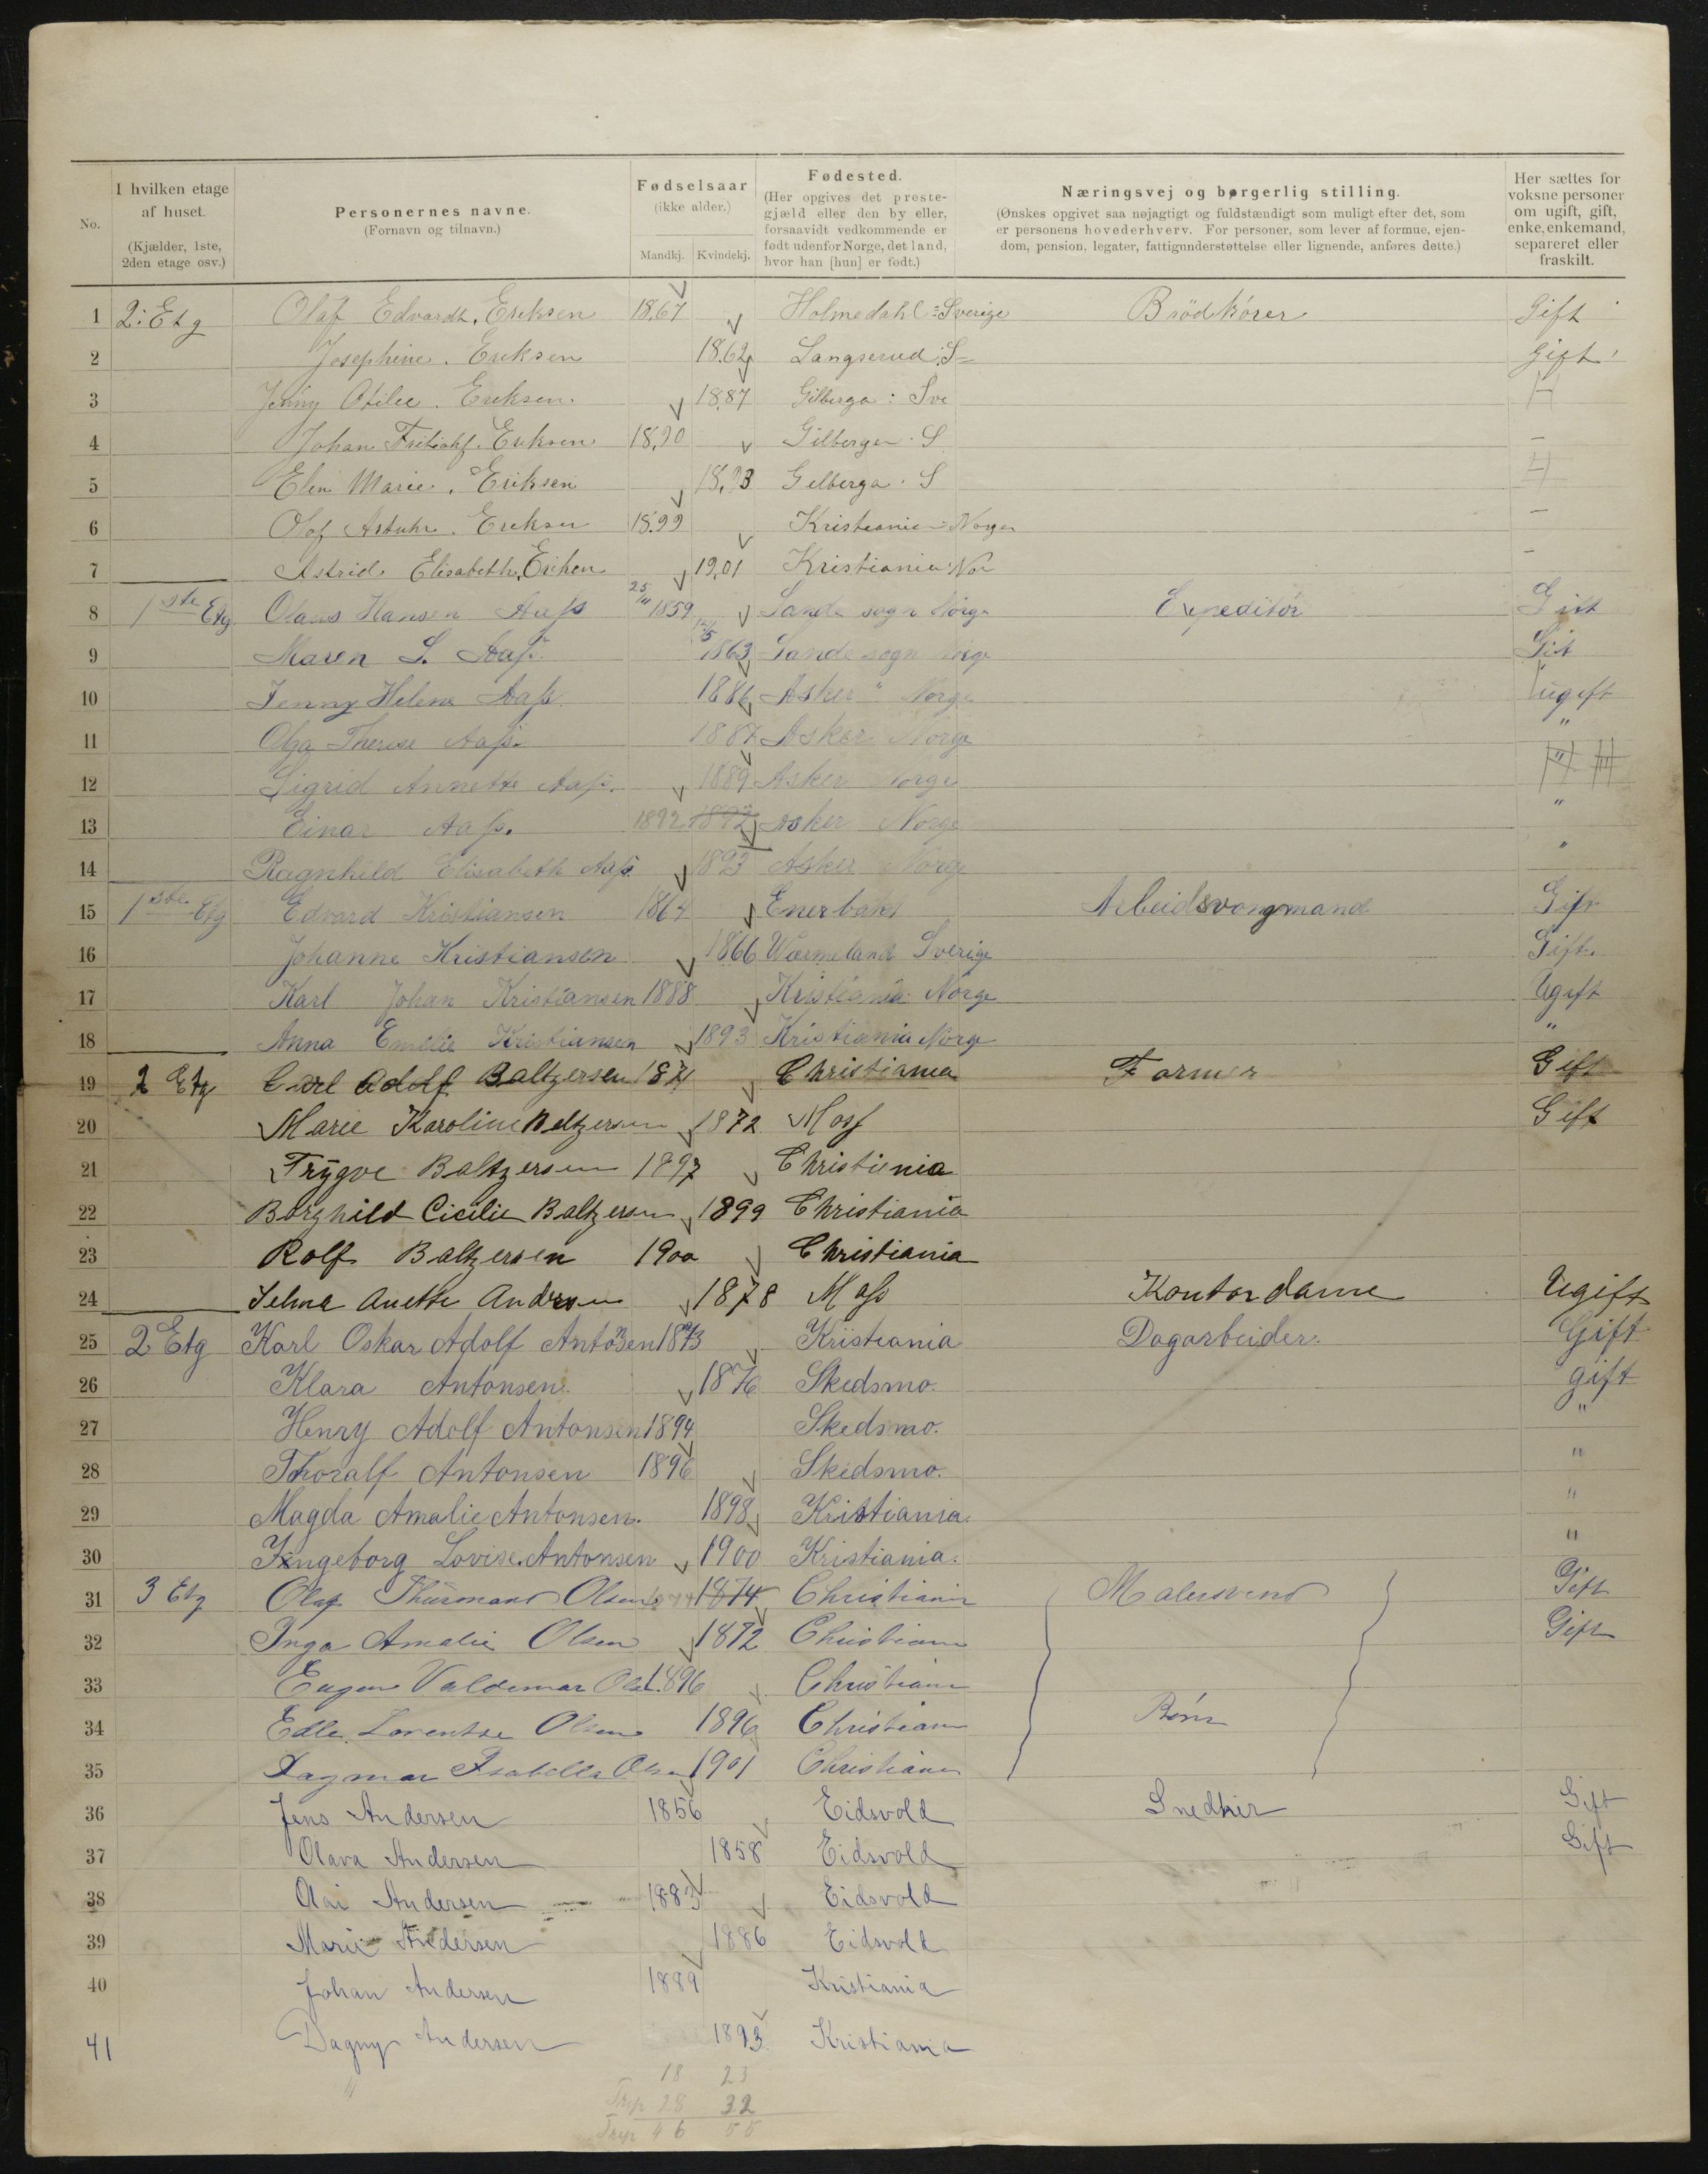 No.
I hvilken etage af huset.
(Kjælder, 1ste, 2den etage osv.)
Personernes navne.
(Fornavn og tilnavn.)
Fødselsaar
(ikke alder.)
Mandkj. Kvindekj.
Fødested.
(Her opgives det prestegjæld eller den by eller, forsaavidt vedkommende er født udenfor Norge, det land, hvor han [hun] er født.)
Næringsvej og børgerlig stilling.
(Ønskes opgivet saa nøjagtigt og fuldstændigt som muligt efter det, som er personens hovederhverv. For personer, som lever af formue, ejendom, pension, legater, fattigunderstøttelse eller lignende, anføres dette.)
Her sættes for voksne personer om ugift, gift, enke, enkemand, separeret eller fraskilt.
1 2: Etg Olaf Edvardt. Eriksen 1867 Holmedahl : Sverige Brödkörer Gift
2 Josephine. Eriksen 1862 Langserud : S Gift
3 Jenny Otilie. Eriksen. 1887 Gilberga : Sve
4 Johan Fritiohf. Eriksen 1890 Gilberga . S –
5 Elin Marie. Eriksen 1893 Gelberga . S
6 Olaf Eriksen 1899 Kristiania Norge –
7 Astrid Elisabeth. Eriksen 1901 Kristiania Nor –
8 1ste Etg Olaus Hansen Aass 25/11 1859 Sande sogn Norge Expeditör Gift
9 Maren S. Aass 1863 Sande sogn Norge Gift
10 Jenny Helene Aass 1886 Asker " Norge ugift
11 Olga Therese Aass. 1887 Asker Norge "
12 Sigrid Annette Aass. 1889 Asker Norge "
13 Einar Aass. 1892 1892 Asker Norge "
14 Ragnhild Elisabeth Aass 1893 Asker Norge "
15 1ste Etg Edvard Kristiansen 1864 Enerbakk Arbeidsvongmand Gift
16 Johanne Kristiansen 1866 Wærmeland Sverige Gift.
17 Karl Johan Kristiansen 1888 Kristiania Norge Ugift
18 Anna Emilie Kristiansen 1893 Kristiania Norge "
19 2 Etg Carl Adolf Baltzersen 1871 Christiania Former Gift
20 Marie Karoline Beltzersen 1872 Moss Gift
21 Trygve Baltzersen 1897 Christiania
22 Borghild Cicilie Baltzersen 1899 Christiania
23 Rolf Baltzersen 1900 Christiania
24 Selma Anette Andersen 1878 Moss Kontordame Ugift
25 2 Etg Karl Oskar Adolf Antonsen 1873 Kristiania Dagarbeider. Gift
26 Klara Antonsen. 1876 Skedsmo. gift
27 Henry Adolf Antonsen 1894 Skedsmo. "
28 Thoralf Antonsen 1896 Skedsmo. "
29 Magda Amalie Antonsen. 1898 Kristiania. "
30 Ingeborg Lovise. Antonsen 1900 Kristiania. "
31 3 Etg Olaf Thurmand Olsen 1874 1874 Christiania Malersvend Gift
32 Inga Amalie Olsen 1872 Christiania Gift
33 Eugen Valdemar Olsen 1896 Christiania
34 Edle Lorentse Olsen 1896 Christiania Börn
35 Dagmar Isabella Olsen 1901 Christiania
36 Jens Andersen 1856 Eidsvold Snedker Gift
37 Olava Andersen 1858 Eidsvold Gift
38 Olai Andersen 1883 Eidsvold
39 Marie Andersen 1886 Eidsvold
40 Johan Andersen 1889 Kristiania
41 Dagny Andersen 1893 Kristiania
18 23
Trsp 28 32
Trsp 46 55